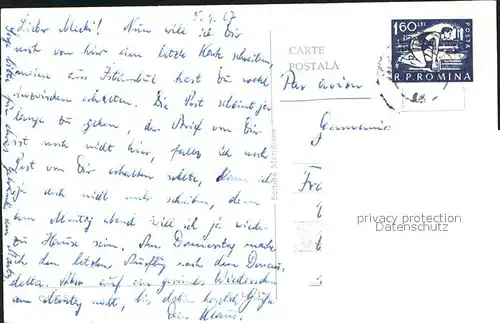 5.9.67
Lieber Mecki! Nun will ich Dir
noch von hier eine letzte Karte schreiben,
meine aus Istanbul hast du wohl
inzwischen erhalten. Die Post scheint ja
lange zu gehen, der Brief von Dir
ist noch nicht hier, falls ich noch
Post von Dir erhalten sollte, kann ich
ja doch nicht mehr schreiben, denn
am Montag abend will ich ja wieder
zu Hause sein. Am Donnerstag mache
ich den letzten Ausflug nach dem Donau-
delta. Also auf ein gesundes Wiedersehen
am Montag, bis dahin herzliche Grüße
Dein Klaus.
CARTE
POSTALĂ
Par avion
1,60 LEI
POSTA
R.P. ROMINA
Germania
Fra
privacy protection
Datenschutz
Editura Meridiane